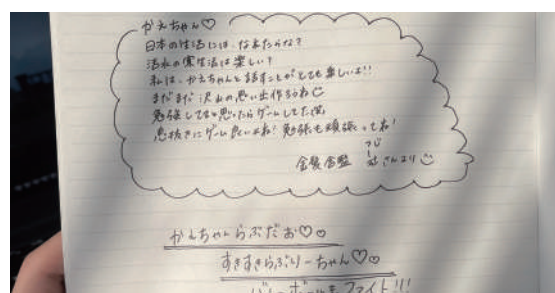 かえちゃん♡
日本の生活には、なれたかな?
清水の寮生活は楽しい?
私は、かえちゃんと話すことがとても楽しいよ!!
まだまだ沢山の思い出作ろうね
勉強してると思ったらゲームしてた
息抜きにゲーム良いよね!勉強も頑張ってね!
さんより
かえちゃんらぶだお♡♡
すきすきらぶりーちゃん♡♡
バレーボールもファイト!!!